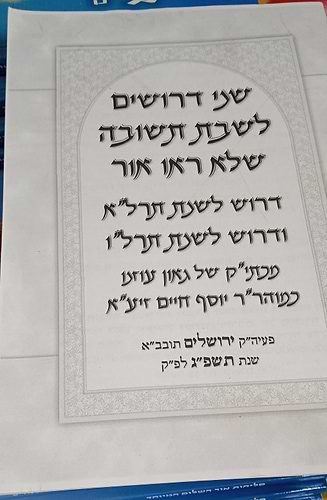 שני דרושים
לשבת תשובה
שלא ראו אור
דרוש לשנת תרל"א
ודרוש לשנת תרל"ו
מכתי"ק של גאון עוזנו
כמוהר"ר יוסף חיים זיע"א
פעיה"ק ירושלים תובב"א
שנת תשפ"ג לפ"ק